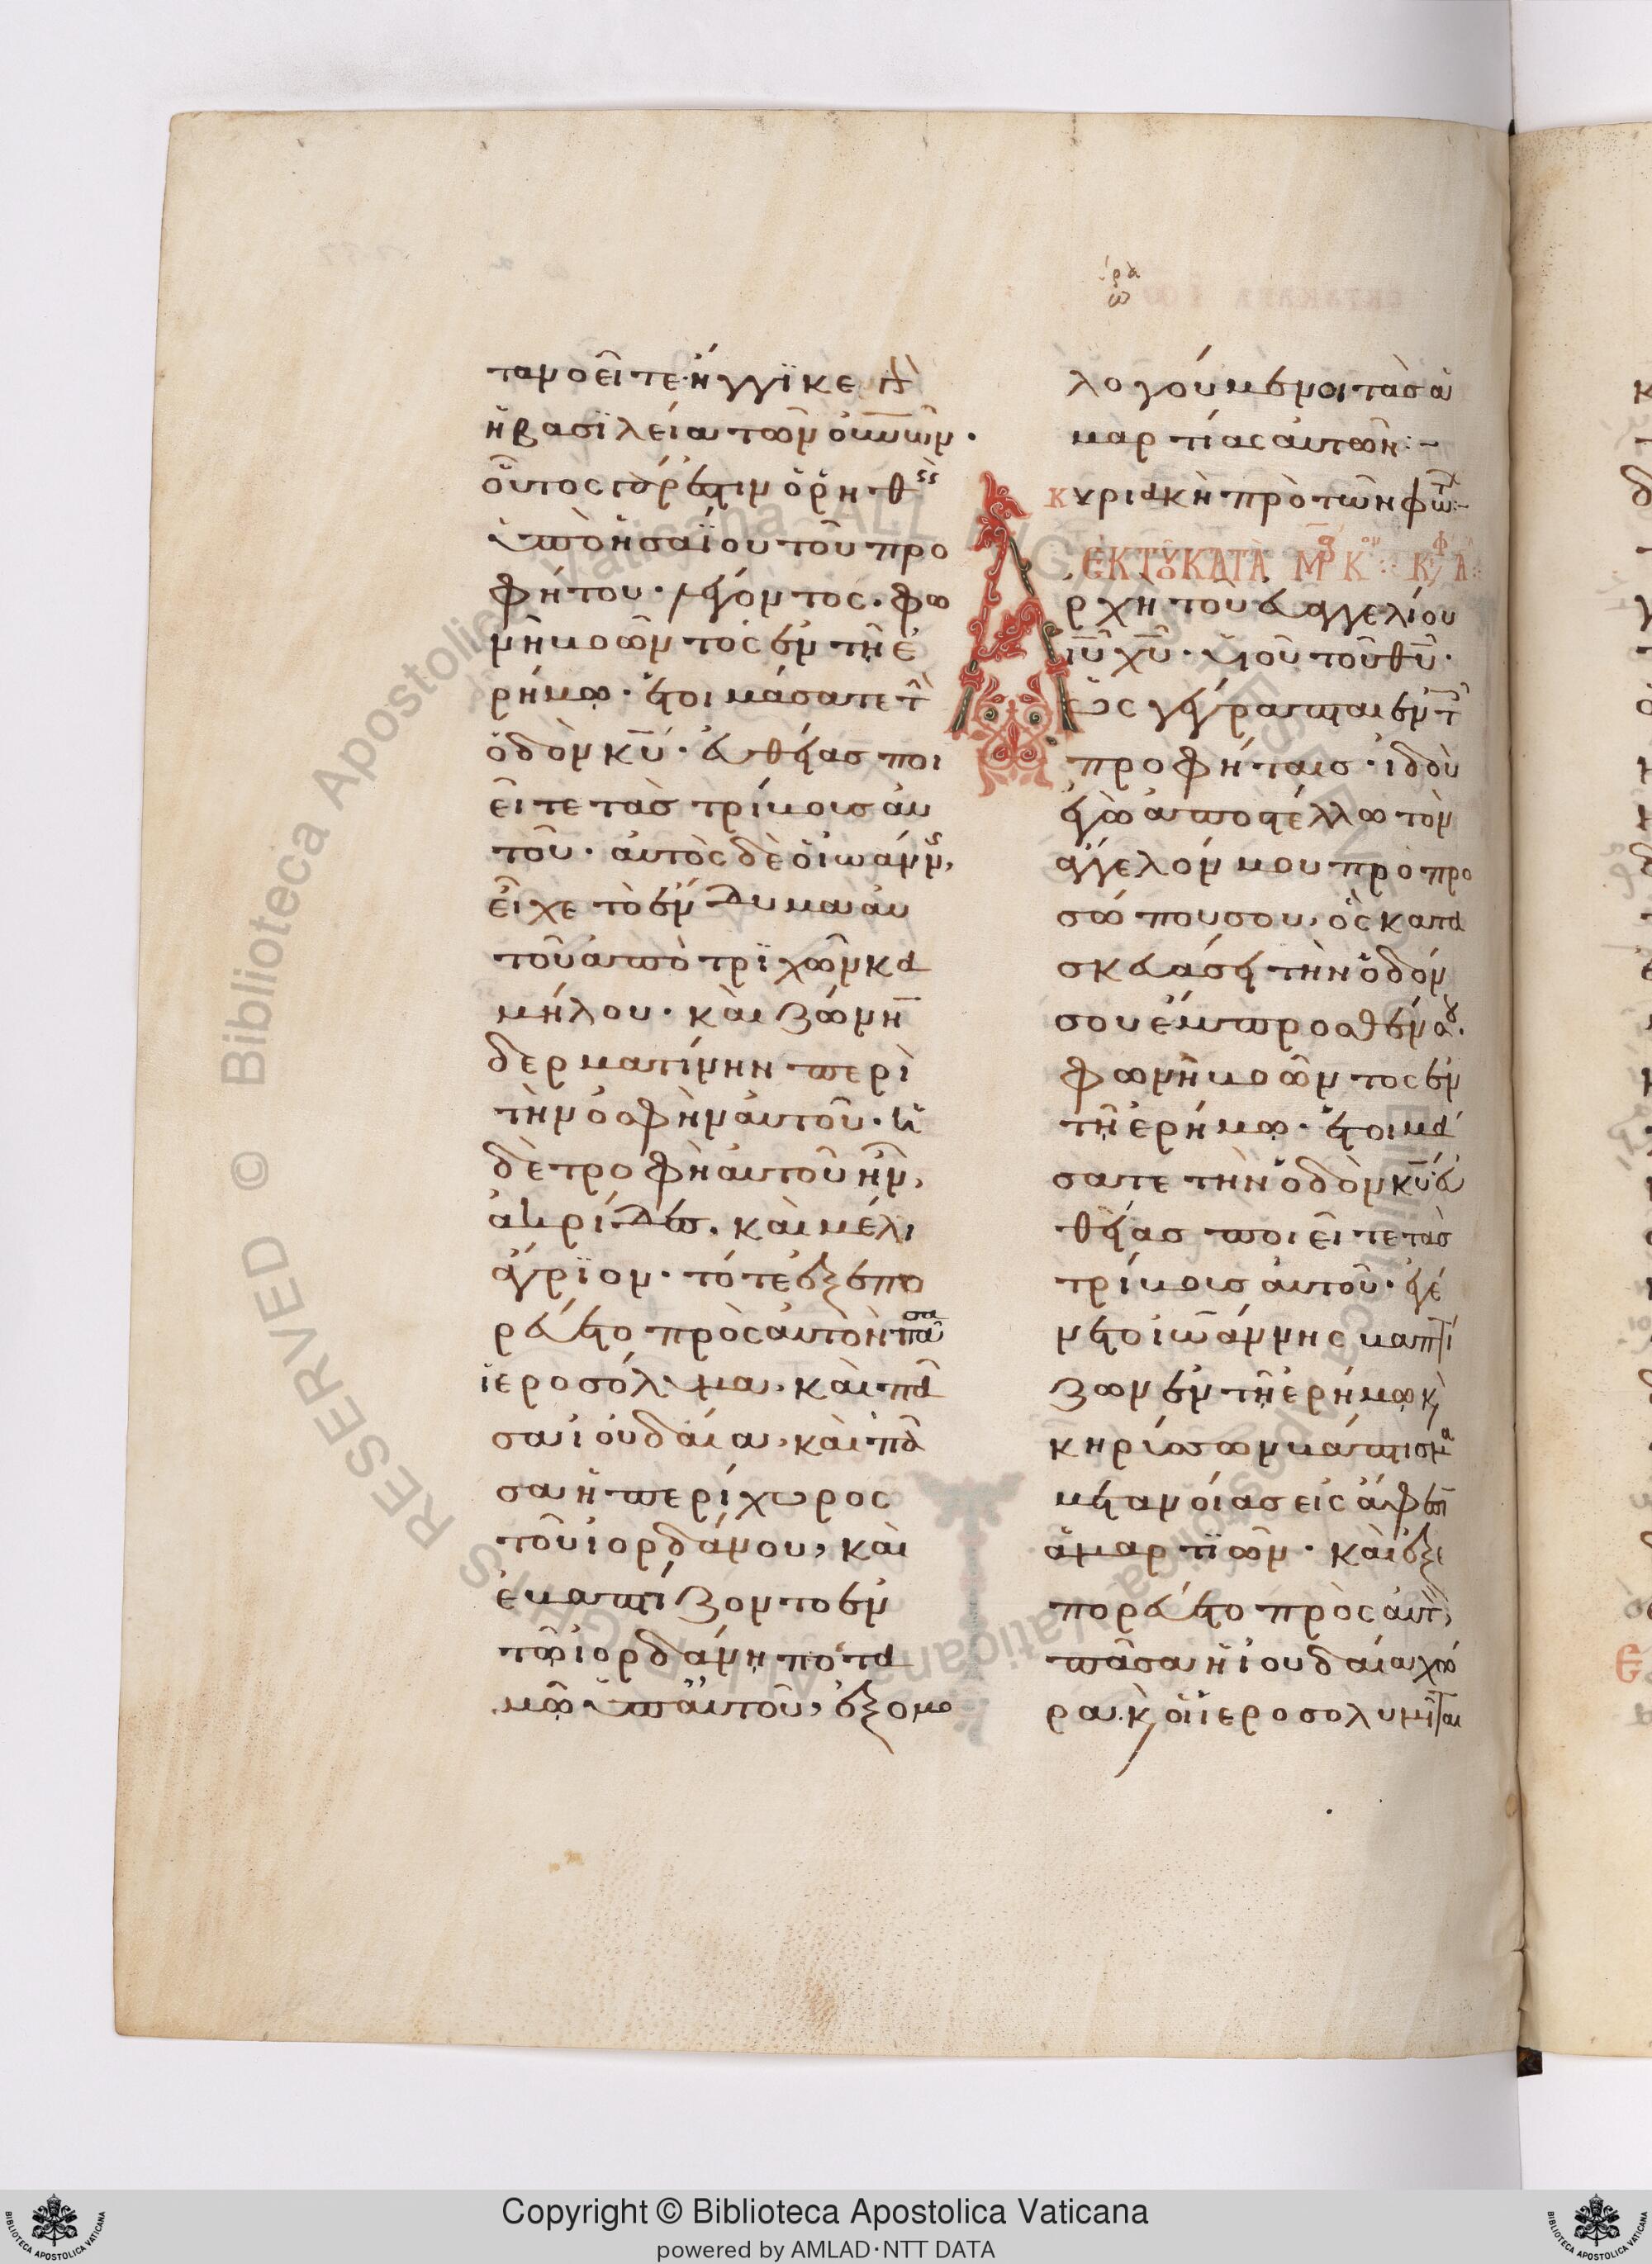 τανοεῖτε· ἤγγϊκε γὰρ
ἡ βασϊλεία τῶν οὐνῶν·
οὗτος γάρ ἐστιν ὁ ῥηθεὶς
ὑπὸ ἠσαΐου τοῦ προ
φήτου· λέγοντος· φω
νὴ βοῶντος ἐν τῇ ἐ
ρήμω· ἑτοιμάσατε τὴν
ὁδὸν κῡ· εὐθείας ποι
εῖτε τὰς τρίβους αὐ
τοῦ· αὐτὸς δὲ ὁ ἰωάννης,
εἶχε τὸ ἔνδυμα αὐ
τοῦ ἀπὸ τρϊχῶν κα
μήλου· καὶ ζώνη̄
δερματίνην περὶ
τὴν ὀσφὴν αὐτοῦ· ἡ
δὲ τροφὴ αὐτοῦ ἦν,
ἀκρίδες· καὶ μέλι
ἄγρϊον· τότε ἐξεπο
ρεύετο πρὸς αὐτὸν πᾶσα
ἱεροσόλυμα, καὶ πᾶ
σα ἰουδαία, καὶ πᾶ
σα ἡ περίχωρος
τοῦ ἰορδάνου, καὶ
ἐβαπτίζοντο ἐν
τῷ ἰορδάνῃ ποτα
μῷ ὑπ' αὐτοῦ, ἐξομο
λογούμενοι τὰς ἁ
μαρτίας αὐτῶν:–
κυριακὴ πρὸ τῶν φώτ:–
ἐκ τοῦ κατὰ Μρ Κ
Αρχὴ τοῦ εὐαγγελίου
ἰῡ χῡ· υἱοῦ τοῦ θῡ·
ὡς γέγραπται ἐν τοῖς
προφήταις· ἰδοὺ
ἐγὼ ἀποστέλλω τὸν
ἄγγελόν μου πρὸ προ
σώπου σου, ὃς κατα
σκευάσει τὴν ὁδόν
σου ἔμπροσθέν σου.
φωνὴ βοῶντος ἐν
τῇ ἐρήμω· ἑτοιμά
σατε τὴν ὁδὸν κῡ· εὐ
θείας ποιεῖτε τὰς
τρίβους αὐτοῦ· ἐγέ
νετο ἰωάννης βαπτί
ζων ἐν τῇ ἐρήμω κὶ
κηρύσσων βάπτισμα
μετανοίας εἰς ἄφεσιν
ἁμαρτϊῶν· καὶ ἐξε
πορεύετο πρὸς αὐτὸν,
πᾶσα ἡ ἰουδαία χώ
ρα· κὶ οἱ ἱεροσολυμῖται